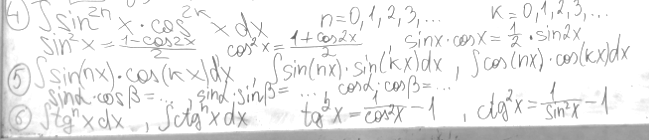 ④ ∫sin²ⁿx·cos²ᵏx dx n=0,1,2,3,... k=0,1,2,3,...
sin²x=(1-cos2x)/2 cos²x=(1+cos2x)/2 sinx·cosx=1/2·sin2x
⑤ ∫sin(nx)·cos(kx)dx, ∫sin(nx)·sin(kx)dx, ∫cos(nx)·cos(kx)dx
sinα·cosβ=... sinα·sinβ=... cosα·cosβ=...
⑥ ∫tgⁿx dx, ∫ctgⁿx dx tg²x=1/cos²x-1, ctg²x=1/sin²x-1